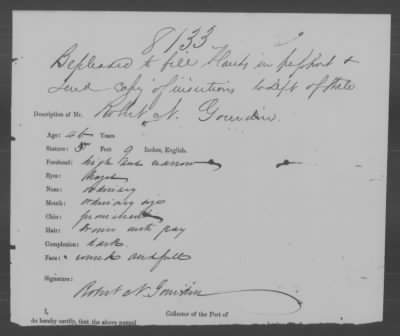 8133
Be pleased to fill blanks in passport &
send copy of insertions to Dept of State
Description of Mr. Robert N. Gourdin.
Age: 46 Years
Stature: 5 Feet 9 Inches, English.
Forehead: high and narrow
Eyes: Hazel
Nose: ordinary
Mouth: ordinary
Chin: prominent
Hair: Brown with gray
Complexion: dark
Face: and full
Signature:
Robert N Gourdin
I, Collector of the Port of
do hereby certify, that the above named